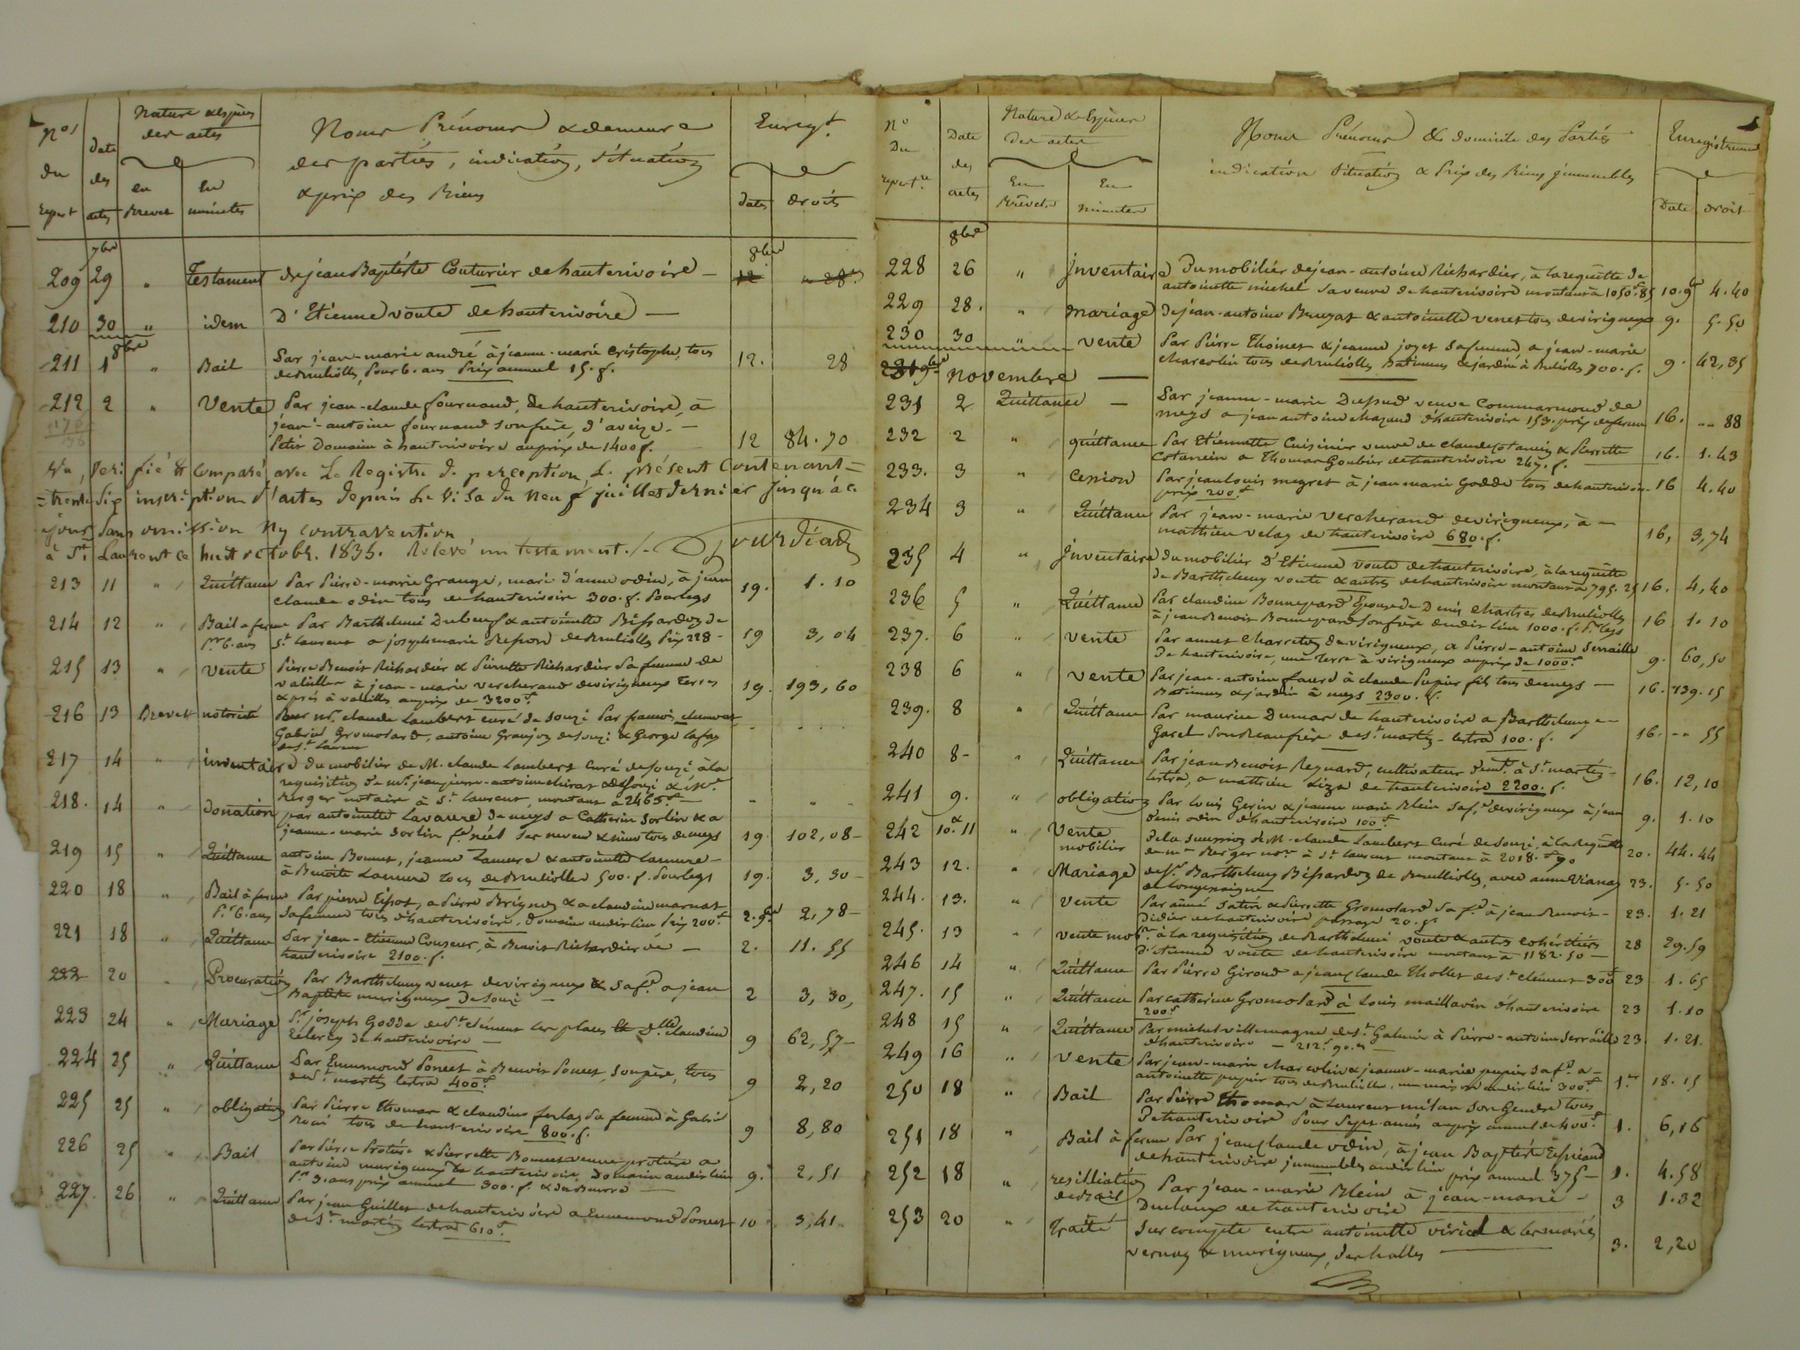 Nos du Repert
Date des actes
Nature & espèces des actes
en Brevet
En minutes
Noms Prénoms & demeure
des parties, indication, situation
& prix des Biens
Enregt.
dates
droits
7bre
8bre
209 29 " Testament de jean Baptiste Couturier de hauterivoire — 12 " 28
210 30 " idem D'Etienne voute de hauterivoire —
8bre
211 1 " Bail Par jean-marie andré à jeanne-marie Cristophe, tous
de Brulioles, Pour 6. ans Prix annuel 15. f. 12. 28
212 2 " Vente Par jean-claude fournand, de hauterivoire, à
jean-antoine fournand son frère, d'aveize. —
Petit Domaine à hauterivoire au prix de 1400 f. 12 84.70
Vu, Verifié & Comparé avec Le Registre de perception, Le présent Contenant
trente six inscriptions d'actes depuis Le Visa du neuf juillet dernier jusqu'à ce
jour, Sans omission Ny contravention
à St. Laurent ce huit octobr. 1835. Relevé un testament ./.
213 11 " Quittance Par Pierre-marie Grange, mari d'anne odin, à jean
claude odin tous de hauterivoire 300. f. Pour legs 19. 1.10
214 12 " Bail a ferme Par Barthelemi Dubeuf & antoinette Bissardon de
Pr. 6. ans St. Laurent a joseph marie de Brulioles Prix 228 - 19 3,04
215 13 " Vente Pierre Benoit Richardier & Pierrette Richardier sa femme de
valeilles à jean-marie vercherand de virigneux terres
& prés à valeilles au prix de 3200 f 19. 193,60
216 13 Brevet notoriété Pour Mr. claude Lambert curé de souzi Par francois
Gabriel Gromolard, antoine Granjon de souzi & George
de St. Laurent
217 14 " inventaire du mobilier de M. claude Lambert Curé de souzi à la
requisition de Mr. jean pierre-antoine de souzi & Mr.
Berger notaire à St. laurent, montant à 2465 f —
218. 14 " Donation par antoinette Lavaure de meys a Catherin Dorlin & a
jeanne-marie Dorlin ses neveu & niece tous de meys 19 102,08 -
219 15 " Quittance antoine Bonnet, jeanne & antoinette
à Benoite tous de Brulioles 500. f. Pour legs 19. 3,30 -
220 18 " Bail à ferme Par pierre a Pierre & a claudine
Pr. 6. ans sa femme tous d'hauterivoire, Domaine audit lieu Prix 200 f 2. 9bre 2,78 -
221 18 " Quittance Par jean-Etienne à Benoit Richardier de —
hauterivoire 2100. f. 2. 11.55
222 20 " Procuration Par Barthelemy venet de virigneux & sa fe. a jean
Baptiste murigneux de souzi — 2 3,30,
223 24 " Mariage Sr. joseph Godde de St. clément les places & Dlle. claudine
de hauterivoire — 9 62,57 -
224 25 " Quittance Par Ennemond Poncet à Benoit Poncet, son père, tous
de St. martin Lestra 400 f 9 2,20
225 25 " obligation Par Pierre thomas & claudine sa femme à Gabriel
tous de hauterivoire 800. f. 9 8,80
226 25 " Bail Par Pierre & Pierrette Bonnet veuve a
antoine murigneux de hauterivoire, Domaine audit lieu
Pr. 3. ans prix annuel 300. f. & du Beurre 9. 2,51
227. 26 " Quittance Par jean Guillet de hauterivoire a Ennemond Poncet
de St. martin Lestra 610 f. 10 3,41
No Du repertre
Date des actes
Nature & Espèces
Des actes
En Brevet
En minutes
Noms Prénoms & domicile des Parties
indication situation & Prix des Biens immeubles
Enregistrement
Date
droit
8bre
228 26 " inventaire Du mobilier de jean-antoine Richardier, à la requête de
antoinette michel sa veuve de hauterivoire montant à 1050 f 85 10. 9bre 4.40
229 28. " mariage de jean-antoine & antoinette venet tous de virigneux 9. 5.50
230 30 " vente Par Pierre Thomet & jeanne sa femme a jean-marie
tous de Brulioles Batiments & jardin à Brulioles 700. f. 9. 42,35
231 9bre novembre —
231 2 Quittance — Par jeanne-marie Dupud veuve Commarmond de
meys a jean antoine d'hauterivoire 153. prix de ferme 16. " 88
232 2 " quittance Par Etiennette Cuisinier veuve de claude & Pierrette
a Thomas Goubier de hauterivoire 247. f. 16. 1.43
233. 3 " Cession Par jean louis megret à jean marie Godde tous de hauterivoire
prix 200 f 16 4.40
234 3 " Quittance Par jean-marie Vercherand de virigneux, à —
mathieu velay de hauterivoire 680. f. 16, 3,74
235 4 " inventaire du mobilier D'Etienne Voute de hauterivoire, à la requête
de Barthelemy voute & autres de hauterivoire montant à 795. 25 16. 4,40
236 5 " Quittance Par claudine Epouse de Denis de Brulioles
à jean Benoit son frère dudit lieu 1000. f. Pr. legs 16 1.10
237. 6 " vente Par annet de virigneux, a Pierre-antoine Serraille
de hauterivoire, une terre à virigneux au prix de 1000 f 9. 60,50
238 6 " vente Par jean-antoine à claude fils tous de meys —
Batiments & jardin à meys 2300. f. 16. 139.15
239. 8 " Quittance Par maurice Dumas de hauterivoire a Barthelemy
son Beaufrère de St. martin-lestra 100. f. 16. -- 55
240 8 - " Quittance Par jean Benoit Reynard, cultivateur demt. à St. martin-
lestra, a mathieu de hauterivoire 2200. f. 16. 12,10
241 9. " obligation Par louis Gerin & jeanne marie Blein sa fe. de virigneux à jean
denis odin d'hauterivoire 100 f 9. 1.10
242 10. & 11 " Vente mobilier de la succession de M. claude Lambert Curé de souzi, à la Requête
de Mr. Berger nore. à St. laurent montant à 2018. f 90 20. 44.44
243 12. " Mariage de Sr. Barthelemy Bissardon de Brulliolles, avec anne Vianay
de longessaigne 23. 5.50
244. 13. " vente Par aimé & Pierrette Gromolard sa fe. à jean Benoit-
Didier de hauterivoire passage 20. f 23. 1.21
245. 13 " vente mobre. à la requisition de Barthelemi voute & autres cohéritiers
d'Etienne voute de hauterivoire montant à 1182.50 — 28 29.59
246 14 " Quittance Par Pierre Giroud a jean claude Thollet de St. clément 300 f 23 1.65
247. 15 " Quittance Par catherine Gromolard à louis maillavin d'hauterivoire
200 f 23 1.10
248 15 " Quittance Par michel villemagne de St. Galmier à Pierre-antoine Serraille
d'hauterivoire — 212 f 90. c — 23. 1.21.
249 16 " vente Par jean-marie & jeanne-marie sa fe. a -
antoinette tous de Brulioles, une maison audit lieu 300 f 1er 18.15
250 18 " Bail Par Pierre thomas à Laurent son Gendre tous
De hauterivoire Pour Sept années au prix annuel de 400 f 1. 6,16
251 18 " Bail à ferme Par jean claude odin, à jean Baptiste
de hauterivoire immeubles audit lieu prix annuel 375 - 1. 4.58
252 18 " resilliation de Bail Par jean-marie Blein à jean-marie -
Duclaux de hauterivoire 3 1.32
253 20 " Traité Sur compte entre antoinette virical & les mariés
vernay & murigneux, des halles 3. 2,20